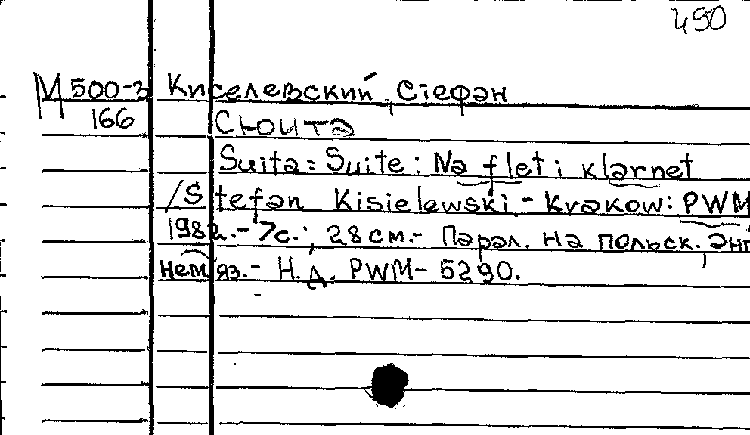 490
М 500-3 Киселевский, Стефан
166 Сюита
Suita = Suite: Na flet i klarnet
/Stefan Kisielewski - Krakow: PWM
198 .- 7с.; 28 см.- Парал. на польск. Энг
нем яз.- Н.д. PWM- 5290.